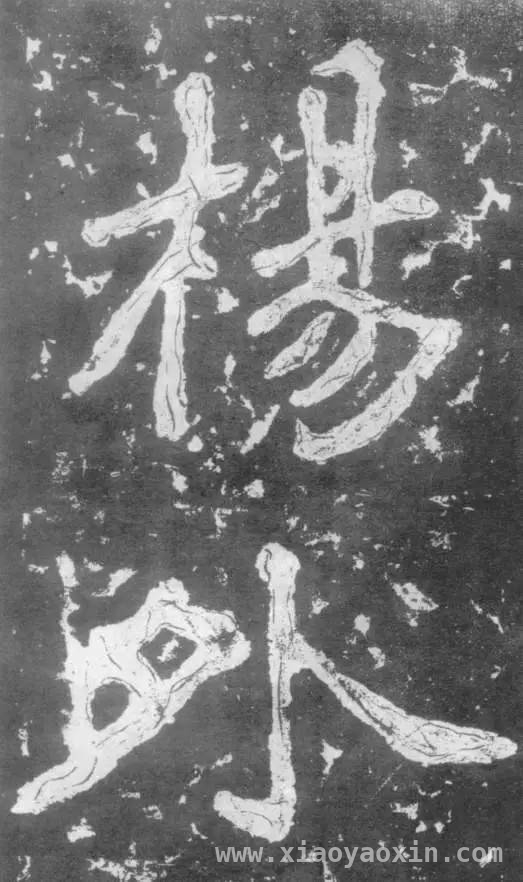 楊
外
www.xiaoyaoxin.com